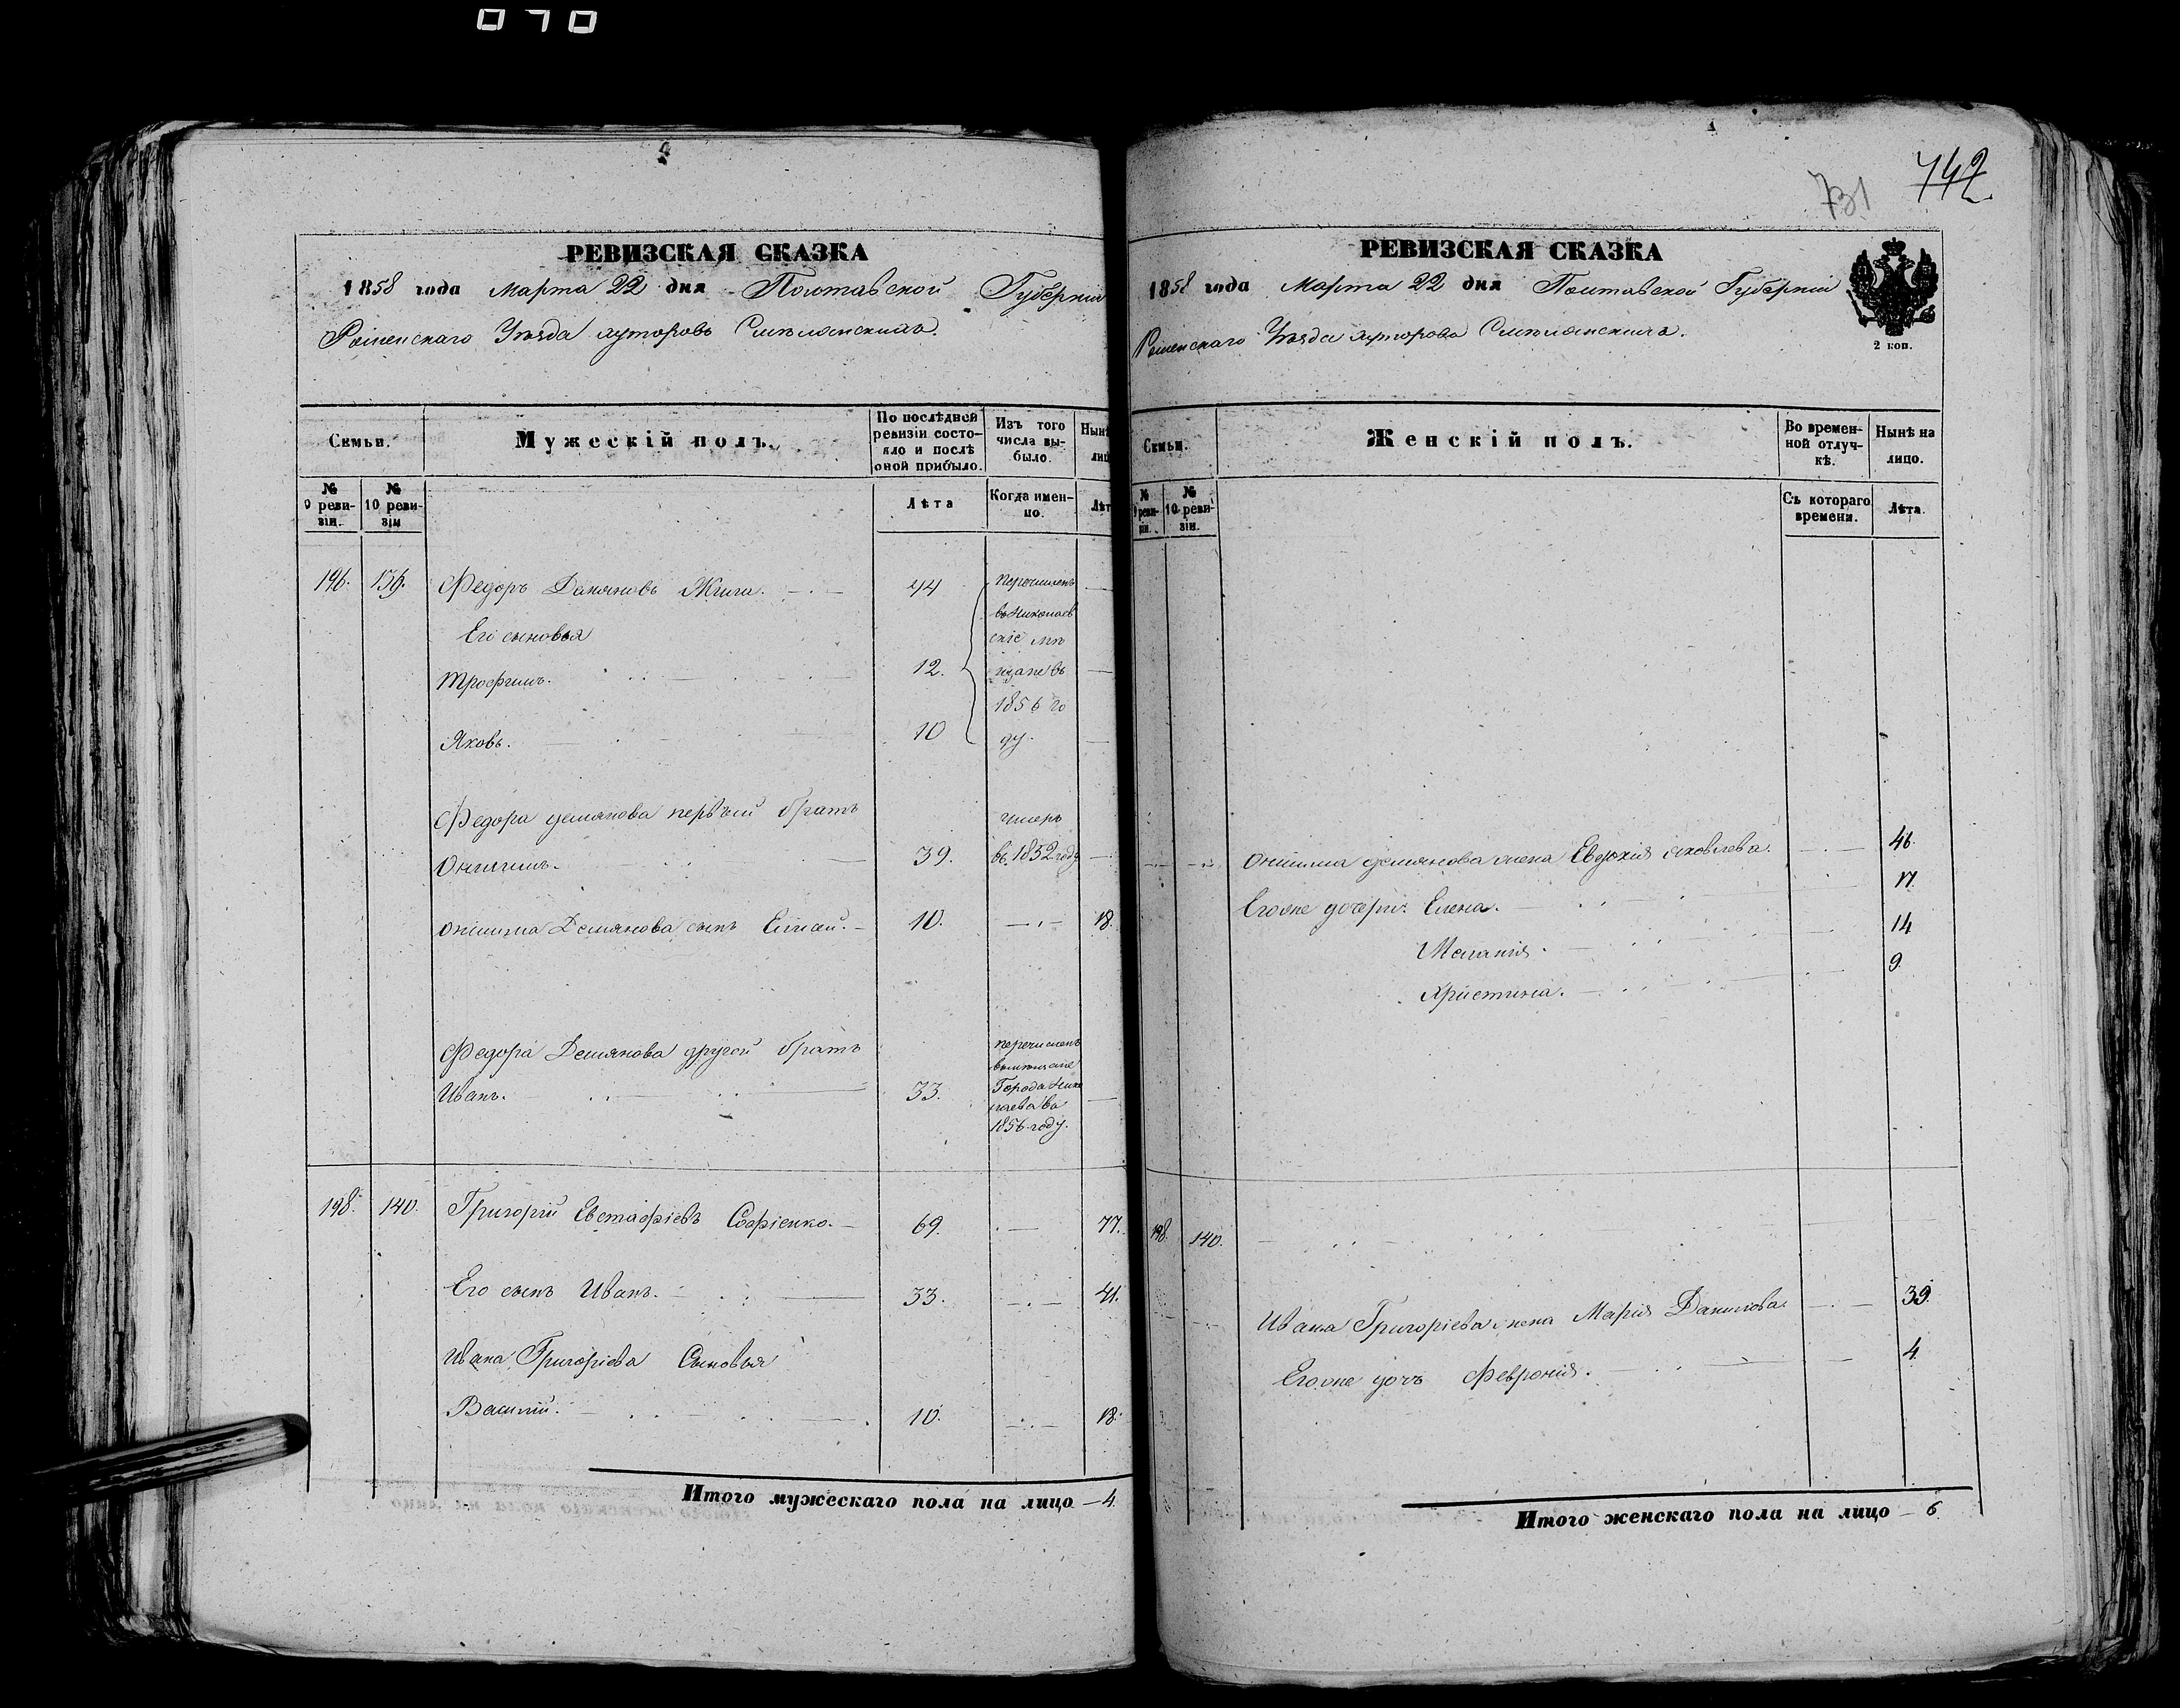 070
РЕВИЗСКАЯ СКАЗКА
1858 года Марта 22 дня Полтавской Губерніи
Роменскаго Уѣзда хуторовъ Смѣлянскихъ.
Семьи.
Мужескій полъ.
По послѣдней ревизіи состо-
яло и послѣ оной прибыло.
Изъ того числа вы-
было.
Нынѣ
лиц
№ 9 реви-
зіи.
№ 10 реви-
зіи
Лѣта
Когда имен-
но.
Лѣт
196. 139. Федоръ Демяновъ Жгига. 44 перечисленъ
Его сыновья въ Николаев
скіе мѣ
Трофимъ. 12. щане въ
1856 го
Яковъ. 10 ду.
Федора демянова первый братъ умеръ
Онисимъ. 39. въ 1852 году
Онисима Демянова сынъ Елисей. 10. 18.
Федора Демянова другой братъ перечисленъ
въ мѣщане
Иванъ. 33. Города Нико
лаева въ
1856 году.
198. 140. Григорій Евстафіевъ Софіенко. 69. 77.
Его сынъ Иванъ. 33. 41.
Ивана Григоріева Сыновья
Василій. 10. 18.
Итого мужескаго пола на лицо 4.
731 742
РЕВИЗСКАЯ СКАЗКА
1858 года Марта 22 дня Полтавской Губерніи
Роменскаго Уѣзда хуторовъ Смѣлянскихъ.
2 коп.
Семьи.
Женскій полъ.
Во времен-
ной отлуч-
кѣ.
Нынѣ на
лицо.
№ 9 реви-
зіи.
№ 10 реви-
зіи.
Съ котораго
времени.
Лѣта.
Онисима демянова жена Евдокія яковлева. 46.
Егоже дочери: Елена. 17.
Меланія. 14
Христина. 9.
198. 140.
Ивана Григоріева жена Марія Данилова. 39.
Егоже дочь Февронія. 4.
Итого женскаго пола на лицо 6.